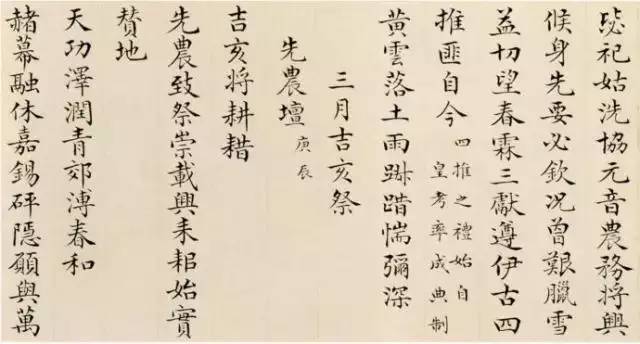 毖祀姑洗協元音農務将興
候身先要必欽况曾艱臘雪
益切望春霖三獻遵伊古四
推匪自今 四推之禮始自
皇考率成典制
黃雲落土雨踧踖惴彌深
三月吉亥祭
先農壇 庚辰
吉亥将耕耤
先農致祭崇載興耒耜始實
賛地
天功澤潤青郊溥春和
赭幕融休嘉錫砰隱願與萬